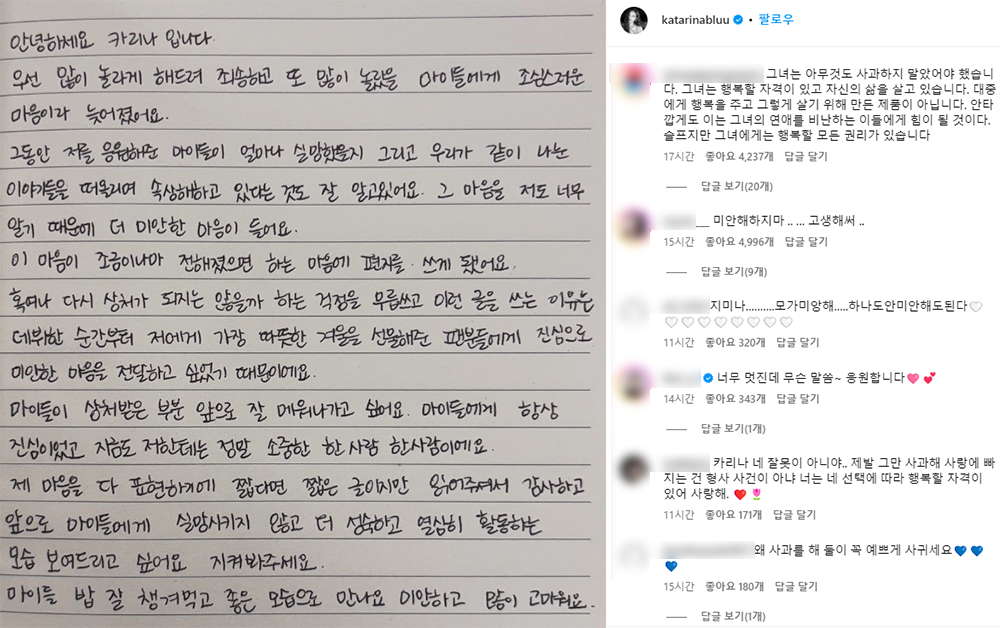 안녕하세요 카리나 입니다.
우선 많이 놀라게 해드려 죄송하고 또 많이 놀랐을 마이들에게 조심스러운
마음이라 늦어졌어요.
그동안 저를 응원해준 마이들이 얼마나 실망했을지 그리고 우리가 같이 나눈
이야기들을 떠올리며 속상해하고 있다는 것도 잘 알고있어요. 그 마음을 저도 너무
알기 때문에 더 미안한 마음이 들어요.
이 마음이 조금이나마 전해졌으면 하는 마음에 편지를 쓰게 됐어요.
혹여나 다시 상처가 되지는 않을까 하는 걱정을 무릅쓰고 이런 글을 쓰는 이유는
데뷔한 순간부터 저에게 가장 따뜻한 겨울을 선물해준 팬분들에게 진심으로
미안한 마음을 전달하고 싶었기 때문이에요.
마이들이 상처받은 부분 앞으로 잘 메워나가고 싶어요. 마이들에게 항상
진심이었고 지금도 저한테는 정말 소중한 한사람 한사람이에요.
제 마음을 다 표현하기에 짧다면 짧은 글이지만 읽어주셔서 감사하고
앞으로 마이들에게 실망시키지 않고 더 성숙하고 열심히 활동하는
모습 보여드리고 싶어요 지켜봐주세요.
마이들 밥 잘 챙겨먹고 좋은 모습으로 만나요 미안하고 많이 고마워요.
katarinabluu • 팔로우
그녀는 아무것도 사과하지 말았어야 했습니
다. 그녀는 행복할 자격이 있고 자신의 삶을 살고 있습니다. 대중
에게 행복을 주고 그렇게 살기 위해 만든 제품이 아닙니다. 안타
깝게도 이는 그녀의 연애를 비난하는 이들에게 힘이 될 것이다.
슬프지만 그녀에게는 행복할 모든 권리가 있습니다
17시간 좋아요 4,237개 답글 달기
답글 보기(20개)
__ 미안해하지마 .. ... 고생해써 ..
15시간 좋아요 4,996개 답글 달기
답글 보기(9개)
지미나..........모가미앙해.....하나도안미안해도된다🤍
🤍🤍🤍🤍🤍🤍🤍🤍
11시간 좋아요 320개 답글 달기
너무 멋진데 무슨 말씀~ 응원합니다💖💕
14시간 좋아요 343개 답글 달기
답글 보기(1개)
카리나 네 잘못이 아니야.. 제발 그만 사과해 사랑에 빠
지는 건 형사 사건이 아냐 너는 네 선택에 따라 행복할 자격이
있어 사랑해. ❤️🌷
11시간 좋아요 171개 답글 달기
왜 사과를 해 둘이 꼭 예쁘게 사귀세요💙💙
💙
15시간 좋아요 180개 답글 달기
답글 보기(1개)